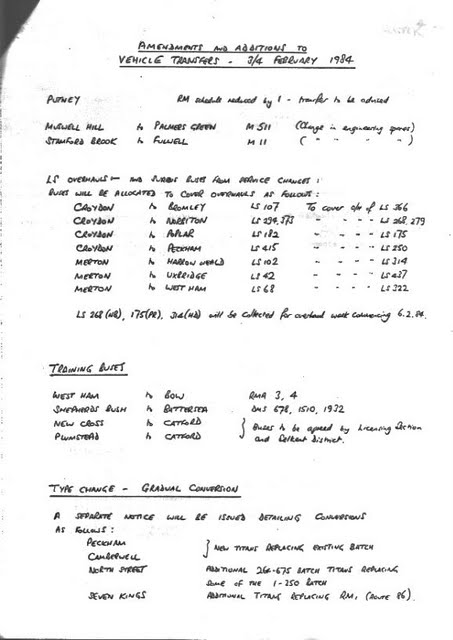 AMENDMENTS AND ADDITIONS TO
VEHICLE TRANSFERS - 3/4 FEBRUARY 1984
PUTNEY RM schedule reduced by 1 - transfer to be advised
MUSWELL HILL to PALMERS GREEN M 511 (Change in engineering spares)
STAMFORD BROOK to FULWELL M 11 ( " " " " )
LS OVERHAULS - AND SURPLUS BUSES FROM SERVICE CHANGES :
BUSES WILL BE ALLOCATED TO COVER OVERHAULS AS FOLLOWS :
CROYDON to BROMLEY LS 107 To cover o/h of LS 366
CROYDON to NORBITON LS 294, 373 " " " " LS 268, 279
CROYDON to POPLAR LS 182 " " " " LS 175
CROYDON to PECKHAM LS 415 " " " " LS 250
MERTON to HARROW WEALD LS 102 " " " " LS 314
MERTON to UXBRIDGE LS 42 " " " " LS 437
MERTON to WEST HAM LS 68 " " " " LS 322
LS 268 (NB), 175 (PR), 314 (HD) will be collected for overhaul week commencing 6.2.84.
TRAINING BUSES
WEST HAM to BOW RMA 3, 4
SHEPHERDS BUSH to BATTERSEA DMS 678, 1510, 1932
NEW CROSS to CATFORD } Buses to be agreed by Licensing Section
PLUMSTEAD to CATFORD and Selkent District.
TYPE CHANGE - GRADUAL CONVERSION
A SEPARATE NOTICE WILL BE ISSUED DETAILING CONVERSIONS
AS FOLLOWS :
PECKHAM } NEW TITANS REPLACING EXISTING BATCH
CAMBERWELL
NORTH STREET ADDITIONAL 264-675 BATCH TITANS REPLACING
SOME OF THE 1-250 BATCH
SEVEN KINGS ADDITIONAL TITANS REPLACING RM, (ROUTE 86).